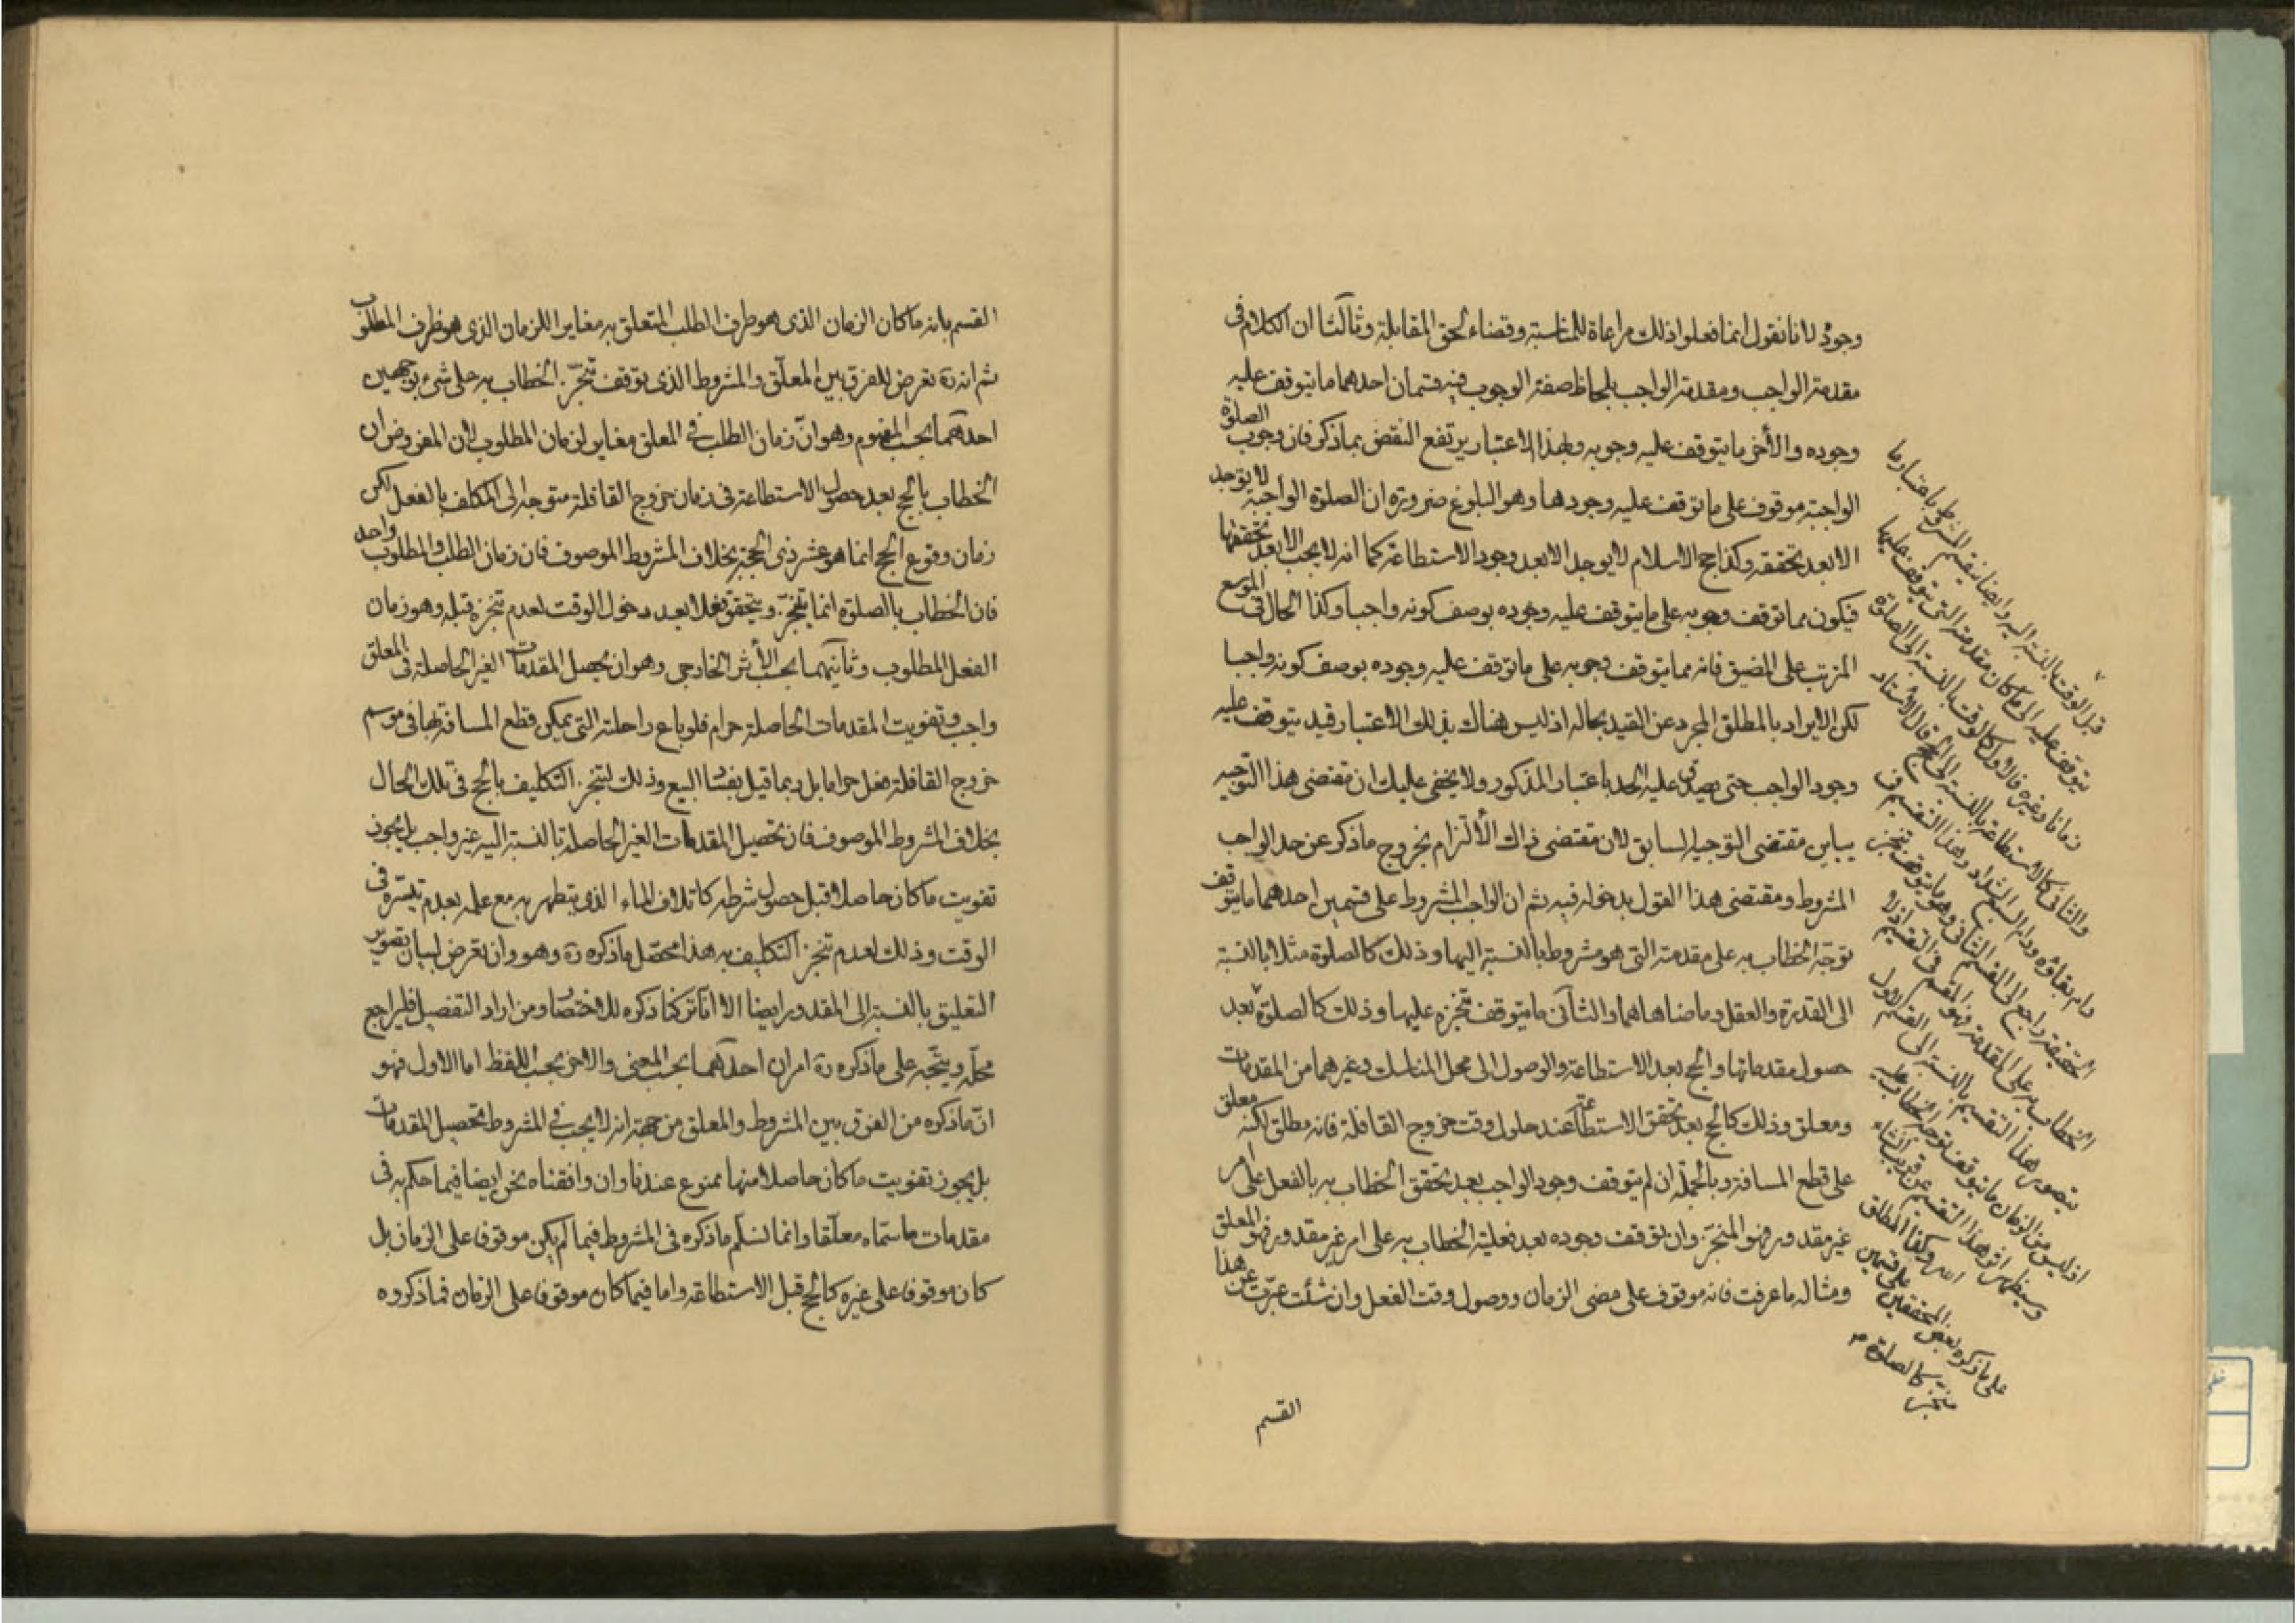 وجوده لانا نقول انما فعلوا ذلك مراعاة للمناسبة وقضاء لحق المقابلة وثالثا ان الكلام فى
مقدمة الواجب ومقدمة الواجب بلحاظ صفة الوجوب فيه قسمان احدهما ما يتوقف عليه
وجوده والأخر ما يتوقف عليه وجوبه وبهذا الاعتبار يرتفع النقض بما ذكر فان وجوب الصلوة
الواجبة موقوف على ما توقف عليه وجودها وهو البلوغ ضرورة ان الصلوة الواجبة لا توجد
الا بعد تحققه وكذا حج الاسلام لا يوجد الا بعد وجود الاستطاعة كما انه لا يجب الا بعد تحققها
فيكون مما توقف وجوبه على ما يتوقف عليه وجوده بوصف كونه واجبا وكذا الحال فى الموسع
المرتب على المضيق فانه مما يتوقف وجوبه على ما توقف عليه وجوده بوصف كونه واجبا
لكن الايراد بالمطلق المجرد عن القيد بحاله اذ ليس هناك بذلك الاعتبار قيد يتوقف عليه
وجود الواجب حتى يصدق عليه الحد باعتبار المذكور ولا يخفى عليك ان مقتضى هذا التوجيه
يباين مقتضى التوجيه السابق لان مقتضى ذاك الألتزام بخروج ما ذكر عن حد الواجب
المشروط ومقتضى هذا القول بدخوله فيه ثم ان الواجب المشروط على قسمين احدهما ما يتوقف
توجه الخطاب به على مقدمته التى هو مشروط بالنسبة اليها وذلك كالصلوة مثلا بالنسبة
الى القدرة والعقل وما ضاهاهما والثانى ما يتوقف تنجزه عليها وذلك كالصلوة بعد
حصول مقدماتها والحج بعد الاستطاعة والوصول الى محل المناسك وغيرهما من المقدمات
ومعلق وذلك كالحج بعد تحقق الاستطاعة عند حلول وقت خروج القافلة فانه مطلق لكنه معلق
على قطع المسافة وبالجملة ان لم يتوقف وجود الواجب بعد تحقق الخطاب به بالفعل على امر
غير مقدور فهو المنجز وان توقف وجوده بعد فعلية الخطاب به على امر غير مقدور فهو المعلق
ومثاله ما عرفت فانه موقوف على مضى الزمان ووصول وقت الفعل وان شئت عبرت عن هذا
القسم
قبل الوقت بالنسبة اليه وايضا ينقسم المشروط باعتبار ما
يتوقف عليه الى ما كان مقدمته التى يتوقف عليها
زمانا وغيره فالاول كالوقت بالنسبة الى الصلوة
والثانى كالاستطاعة بالنسبة الى الحج قال الاستاد
دام بقاؤه ودام السداد وهذا التقسيم فى
الحقيقة راجع الى القسم الثانى وهو ما يتوقف تنجز
الخطاب به على المقدمة فهو المقسم فى التقسيم اذ لا
يتصور هذا التقسيم بالنسبة الى القسم الاول
اذ ليس من الزمان ما يتوقف توجه الخطاب عليه
وسيظهر اثر هذا التقسيم عن قريب انشاء
الله وكذا المطلق
على ما ذكره بعض المحققين على قسمين
منجز كالصلوة
القسم بانه ما كان الزمان الذى هو ظرف الطلب المتعلق به مغايرا للزمان الذى هو ظرف المطلوب
ثم انه ره تعرض للفرق بين المعلق والمشروط الذى توقف تنجز الخطاب به على شىء بوجهين
احدهما بحسب المفهوم وهو ان زمان الطلب فى المعلق مغاير لزمان المطلوب لان المفروض ان
الخطاب بالحج بعد حصول الاستطاعة فى زمان خروج القافلة متوجه الى المكلف بالفعل لكن
زمان وقوع الحج انما هو عشر ذى الحجة بخلاف المشروط الموصوف فان زمان الطلب والمطلوب واحد
فان الخطاب بالصلوة انما يتنجز ويتحقق فعلا بعد دخول الوقت لعدم تنجزه قبله وهو زمان
الفعل المطلوب وثانيهما بحسب الأثر الخارجى وهو ان تحصيل المقدمات الغير الحاصلة فى المعلق
واجب وتفويت المقدمات الحاصلة حرام فلو باع راحلته التى يمكن قطع المسافة بها فى موسم
خروج القافلة فعل حراما بل ربما قيل بفساد البيع وذلك لتنجز التكليف بالحج فى تلك الحال
بخلاف المشروط الموصوف فان تحصيل المقدمات الغير الحاصلة بالنسبة اليه غير واجب بل يجوز
تفويت ما كان حاصلا قبل حصول شرطه كاتلاف الماء الذى يتطهر به مع علمه بعدم تيسره فى
الوقت وذلك لعدم تنجز التكليف به هذا محصل ما ذكره ره وهو وان تعرض لبيان تصوير
التعليق بالنسبة الى المقدور ايضا الا انا تركنا ذكره للاختصار ومن اراد التفصيل فليراجع
محله ويتجه على ما ذكره ره امران احدهما بحسب المعنى والاخر بحسب اللفظ اما الاول فهو
ان ما ذكره من الفرق بين المشروط والمعلق من جهة انه لا يجب فى المشروط تحصيل المقدمات
بل يجوز تفويت ما كان حاصلا منها ممنوع عندنا وان وافقناه نحن ايضا فيما حكم به فى
مقدمات ما سماه معلقا وانما نسلم ما ذكره فى المشروط فيما لم يكن موقوفا على الزمان بل
كان موقوفا على غيره كالحج قبل الاستطاعة واما فيما كان موقوفا على الزمان فما ذكروه